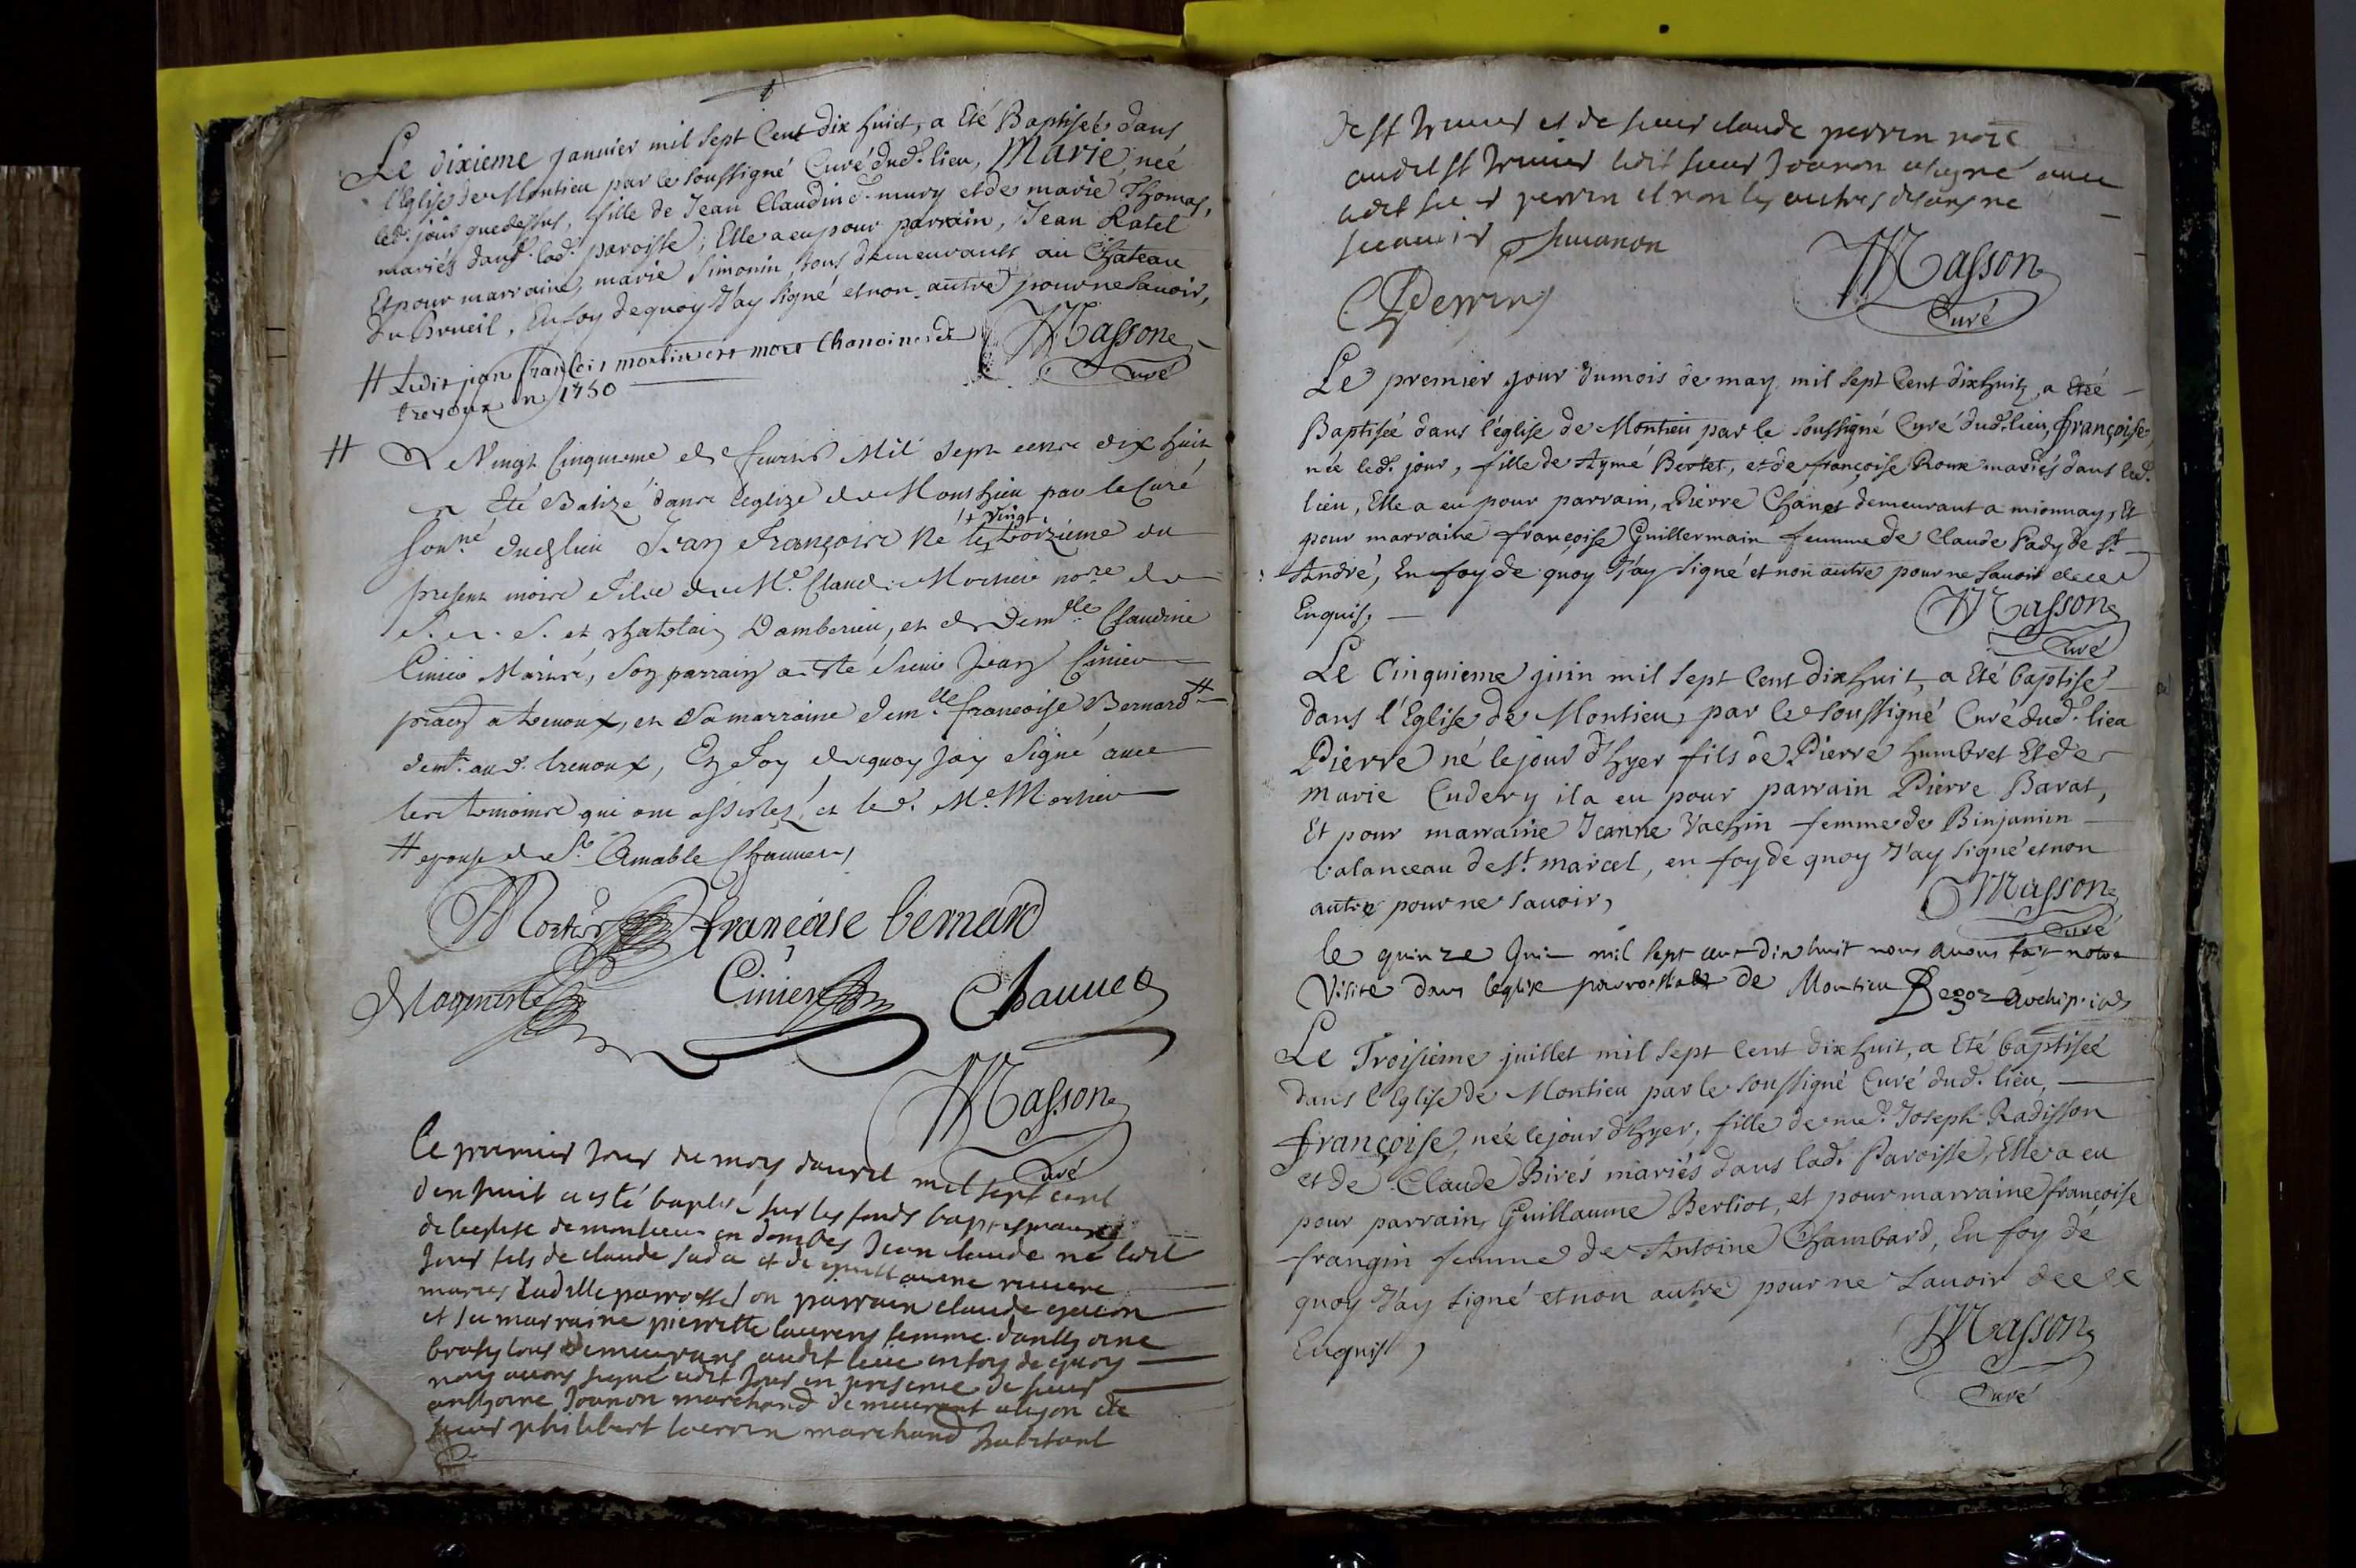 Le dixieme janvier mil sept Cent dix huict, a Eté Baptisée dans
l'Eglise de Montieu par le soussigné Curé dud. lieu, Marie, neé
led. jour que dessus, fille de Jean Claudin d. mury et de marie Thomas,
mariés dans lad. paroisse; Elle a eu pour parrain, Jean Ratel
Et pour marraine, marie Simonin, tous demeurants au Chateau
du Breuil, En foy de quoy J'ay signé et non autre pour ne savoir,
Masson
Curé
# Ledit jean françois mortier est mort Chanoine de
trevoux en 1750
# Le Vingt Cinquieme de fevrier Mil sept cents dix huit
a Eté Batizé dans l'eglize de Monthieu par le Curé
sousné dud. lieu Jean François Né le vingt troizieme du
present mois Fils de Me. Claude Mortier nore de
S. A. S. et chatelain Damberieu, et de Demlle Claudine
Cinier Mariés, son parrain a êté Sieur Jean Cinier
a trevoux, et sa marraine demlle françoise Bernard #
demt. aud. trevoux, En foy de quoy Jay signé avec
les temoins qui ont assistez, et led. Me Mortier
# epouse de Sr. Amable Chauuet,
Mortier françoise bernard
Cinier Chauuet
Masson
Curé
le premier Jour du moy davril mil sept cent
dix huit a esté baptisé sur les fonds baptismaux
de leglise de montieu en dombes Jean claude né ledit
Jour fils de claude et de riviere
maries laditte parroisse son parrain claude
et sa marraine pierrette laurens femme danthoine
tous demeurans audit lieu en foy de quoy
nous avons signé ledit Jour en presence de sieur
anthoine Jouanon marchand demeurant a lyon de
sieur philibert perrin marchand habitant
de st trivier et de sieur claude perrin nore
audit st trivier ledit sieur Jouanon a signé avec
ledit sieur perrin et non les autres
Jouanon
Masson
CPerrin
Curé
Le premier jour du mois de may mil sept Cent dix huit, a Eteé
Baptiseé dans l'église de Montieu par le soussigné Curé dud. lieu, françoise
née led. jour, fille de Aymé Bertet, et de françoise Roux mariés dans led.
lieu, Elle a eu pour parrain, Pierre Chanet demeurant a mionnay, Et
pour marraine françoise Guillermain femme de Claude Pady de St.
André, En foy de quoy J'ay signé et non autre pour ne savoir de ce
Enquis,
Masson
Curé
Le Cinquieme juin mil sept Cent dix huit, a Eté baptisé
dans l'Eglise de Montieu, par le soussigné Curé dud. lieu
Pierre né le jour d'hyer fils de Pierre humbret Et de
Marie Cudery il a eu pour parrain Pierre Barat,
Et pour marraine Jeanne Vachin femme de Binjamin
balanceau de St. marcel, en foy de quoy J'ay signé et non
autre pour ne savoir,
Masson
Curé
le quinze Juin mil sept cent dix huit nous avons fait notre
Visite dans leglise parroissiale de Montieu
Le Troisieme juillet mil sept Cent dix huit, a Eté baptiseé
dans l'Eglise de Montieu par le soussigné Curé dud. lieu,
françoise, née le jour d'hyer, fille de me. Joseph Radisson
et de Claude Birés mariés dans lad. Paroisse, Elle a eu
pour parrain, Guillaume Berliot, et pour marraine françoise
frangin femme de Antoine Chambard, En foy de
quoy J'ay signé et non autre pour ne savoir de ce
Enquis,
Masson
Curé